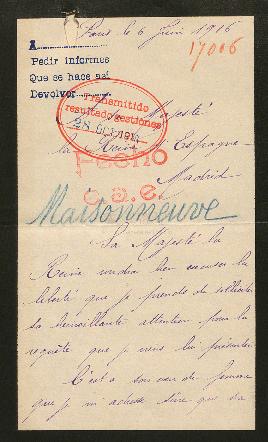 Paris le 6 Juin 1916
17006
A
Pedir informes
Que se hace así
Devolver
Transmitido
resultado gestiones
28 OCT 1916
Majesté
la Reine d'Espagne
Madrid
Fecho
c.a.e.
Maisonneuve
Sa Majesté la
Reine voudra bien excuser la
liberté que je prends de solliciter
sa bienveillante attention pour la
requête que je viens lui présenter
C'est à son cœur de femme
que je m'adresse sûre que sa